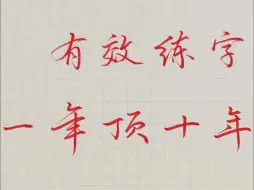 有效练字
一年顶十年